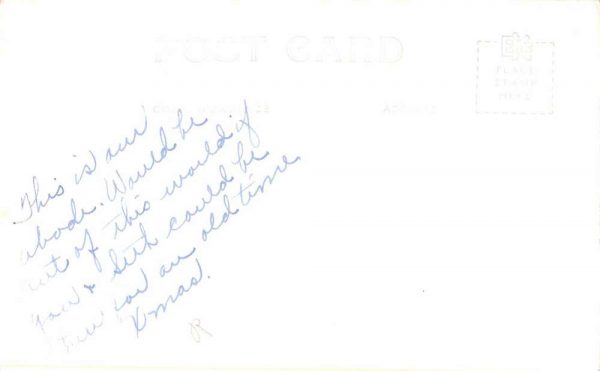 POST CARD
EKC
PLACE
STAMP
HERE
CORRESPONDENCE
ADDRESS
This is our
abode. Would be
out of this world if
you & Seth could be
here for an old time
Xmas.
R